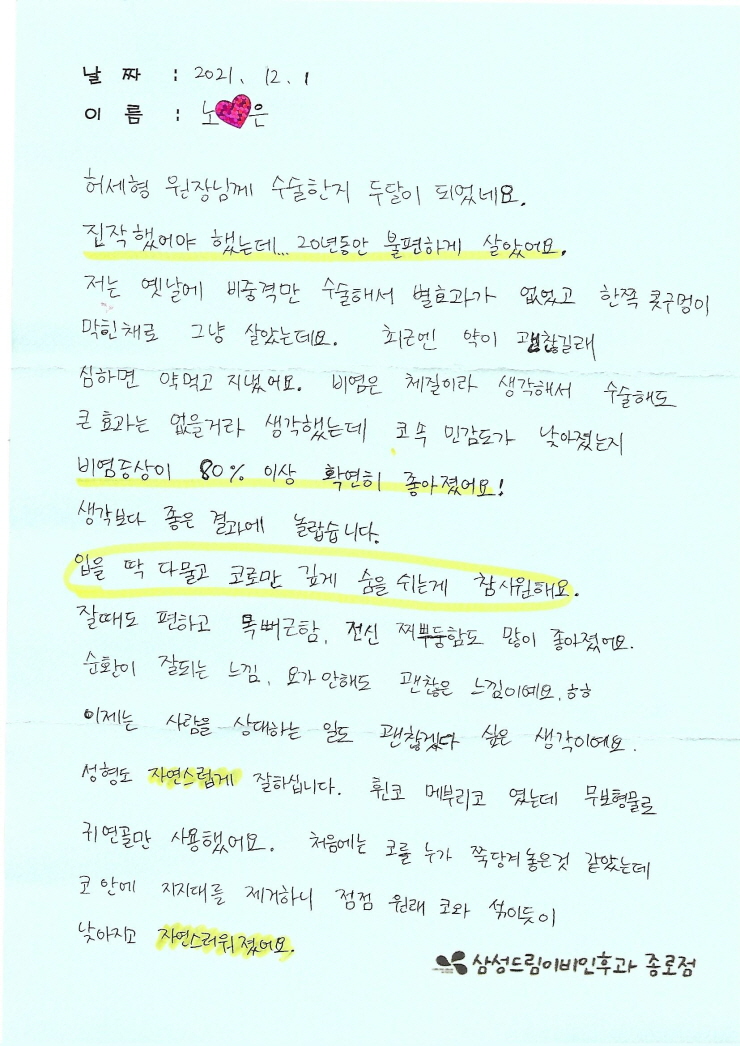 날 짜 : 2021. 12. 1
이 름 : 노 은
허세형 원장님께 수술한지 두달이 되었네요.
진작했어야 했는데... 20년동안 불편하게 살았어요.
저는 옛날에 비중격만 수술해서 별효과가 없었고 한쪽 콧구멍이
막힌채로 그냥 살았는데요. 최근엔 약이 괜찮길래
심하면 약먹고 지냈어요. 비염은 체질이라 생각해서 수술해도
큰 효과는 없을거라 생각했는데 코 속 민감도가 낮아졌는지
비염증상이 80% 이상 확연히 좋아졌어요!
생각보다 좋은 결과에 놀랍습니다.
입을 딱 다물고 코로만 깊게 숨을 쉬는게 참 시원해요.
잘때도 편하고 목뻐근함, 전신 찌뿌둥함도 많이 좋아졌어요.
순환이 잘되는 느낌, 요가 안해도 괜찮은 느낌이예요. ㅎㅎ
이제는 사람을 상대하는 일도 괜찮겠다 싶은 생각이에요.
성형도 자연스럽게 잘하십니다. 휜코 메부리코 였는데 무보형물로
귀연골만 사용했어요. 처음에는 코를 누가 쭉당겨놓은것 같았는데
코 안에 지지대를 제거하니 점점 원래 코와 섞이듯이
낮아지고 자연스러워졌어요.
삼성드림이비인후과 종로점